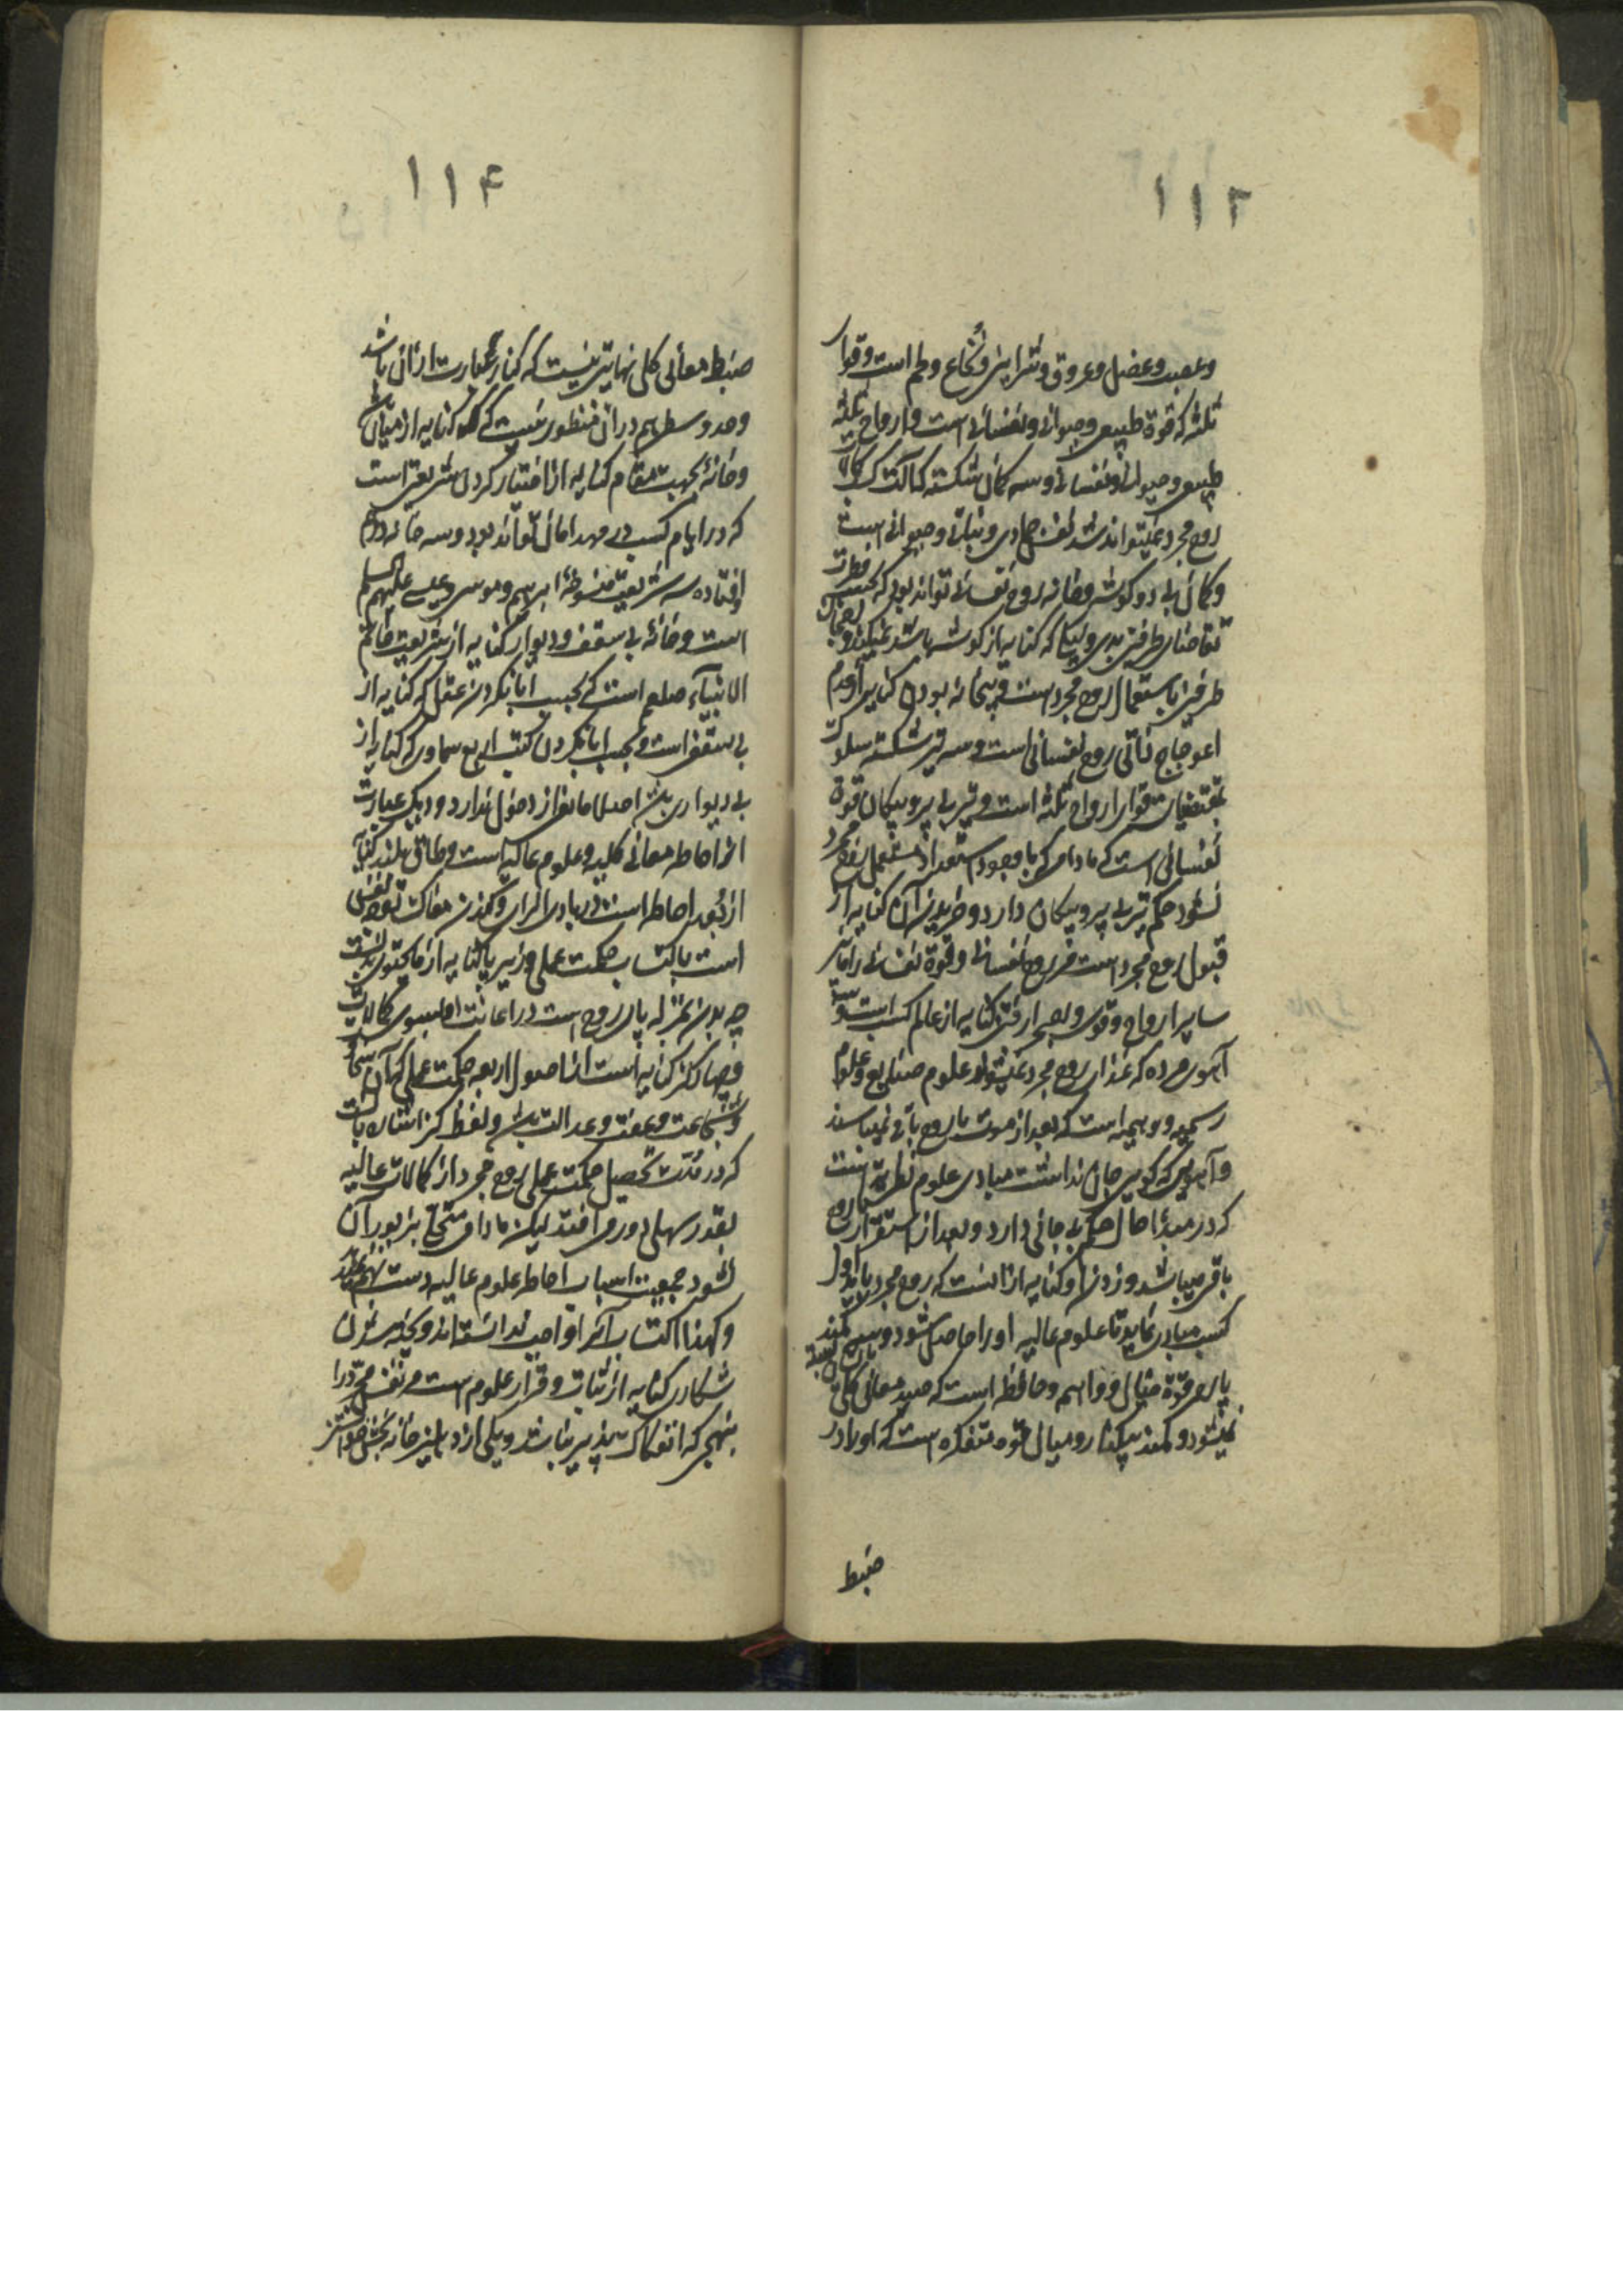 ١١٢
وعصب وعضل وعروق وشرایین ونخاع ولحم است وقوای
ثلثه که قوة طبیعی وحیوانی ونفسانی است وارواح ثلثه
طبیعی وحیوانی ونفسانی وسه کمان شکسته که آلت کسب کمالات
روح مجرد نمیتواند شد نفس جمادی ونباتی وحیوانی است
وکمان بی دو گوشه وخانه روح نفسانی تواند بود که بحسب فطرت
تقاضای طرفین بدی ونیکی که کنایه از گوشها باشد نمیکند
طرفین باستعمال روح مجرد است وبیخانه بودن کنایه از عدم
اعوجاج ذاتی روح نفسانی است وسه تیر شکسته سلوک
بمقتضیات قوای ارواح ثلثه است وتیر بی پر وپیکان قوة
نفسانی است که مادامی که با وجود استعداد مستعمل روح مجرد
نشود حکم تیر بی پر وپیکان دارد وخریدن آن کنایه از
قبول روح مجرد است مر روح نفسانی وقوة نفسانی را
سایر ارواح وقوی وبصحرا رفتن کنایه از عالم کسب است وسه
آهوی مرده که غذای روح مجرد نمیشود علوم صنایع وعلوم
رسمیه ووهمیه است که بعد از موت با روح باقی نمیماند
وآهویی که گویی جان نداشت مبادی علوم نظریه است
که در مبدأ حال حکم بی جانی دارد وبعد از استقرار با روح
باقی میباشد وزدن او کنایه از آنست که روح مجرد باید اول
کسب مبادی نماید تا علوم عالیه او را حاصل شود وسه کمند
پاره قوة خیال وواهمه وحافظه است که صید معانی کلی
نمیشود وکمند بیکنار ومیان قوه متفکره است که او را در
ضبط
١١۴
ضبط معانی کلی نهایتی نیست که کنار عبارت از آن باشد
وحد وسط هم در آن منظور نیست که کنایه از میان
وخانه بجهت مقام کنایه از اختیار کردن شریعتی است
که در ایام کسب در مهد امان تواند بود وسه خانه درهم
افتاده سه شریعت منسوخهٔ ابرهیم وموسی وعیسی علیهم السلم
است وخانهٔ بی سقف ودیوار کنایه از شریعت خاتم
الانبیاء صلعم است که بحسب ابا نکردن عقل که کنایه از
بی سقفی است وبحسب ابا نکردن کتب اربع سماوی که کنایه از
بی دیواری باشد اصلا مانعی از دخول ندارد ودیگ عبارت
از احاطه معانی کلیه وعلوم عالیه است وطاق بلند کنایه
از بُعد احاطه است در بادی الرای وکندن مغاک تعب نفس
است باکتساب حکمت عملی وزیر پا کنایه از ماتحتوی بدنست
چه بدن بمنزله پای روح است در اعانت او بسوی کمالات
وچهار گز کنایه است از اصول اربعه حکمت عملی که آن سخا
وشجاعت وعفت وعدالت باشد ولفظ گز اشاره بآنست
که در مدت تحصیل حکمت عملی روح مجرد از کمالات عالیه
بقدر سهلی دور می افتد لیکن مادامی متحلی بزیور آن
نشود جمعیت اسباب احاطه علوم عالیه دست نمیدهد
ولهذا اکتساب آنرا واجب دانسته اند وپخته شدن
شکاری کنایه از ثبات وقرار علوم است در نفس مجرد را
بنهجی که انفکاک پذیر نباشد ویکی از دهلیز خانه بخش خواستن